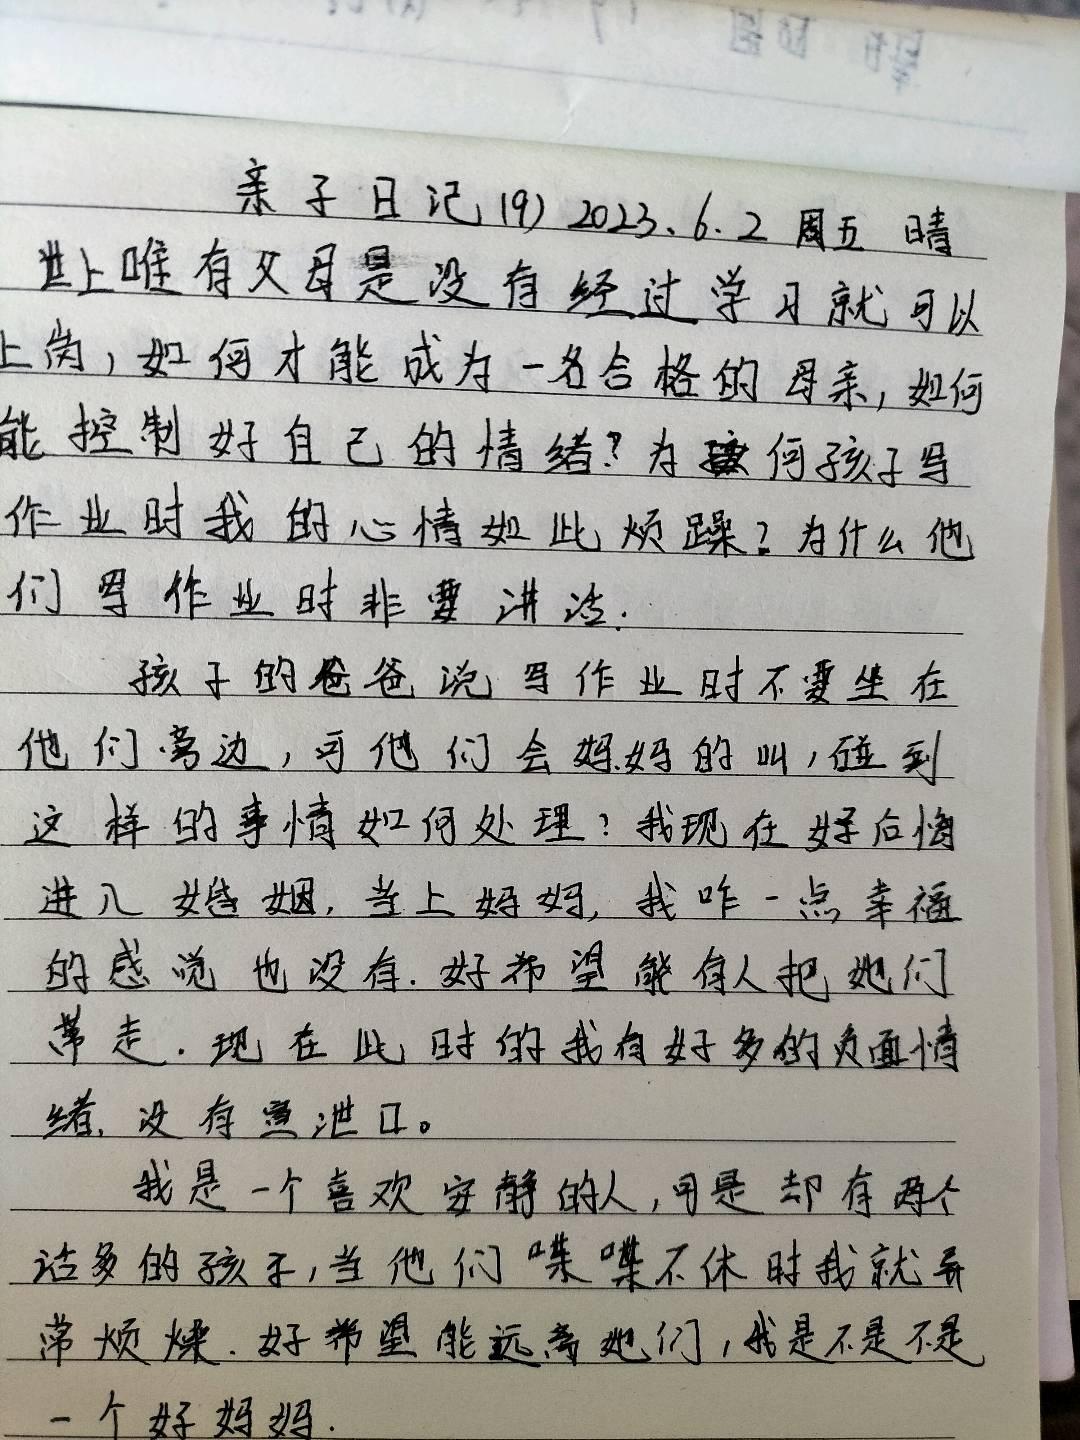 亲子日记(9) 2023.6.2 周五 晴
世上唯有父母是没有经过学习就可以
上岗,如何才能成为一名合格的母亲,如何
能控制好自己的情绪?为何孩子写
作业时我的心情如此烦躁?为什么他
们写作业时非要讲话.
孩子的爸爸说写作业时不要坐在
他们旁边,可他们会妈妈的叫,碰到
这样的事情如何处理?我现在好后悔
进入婚姻,当上妈妈,我咋一点幸福
的感觉也没有.好希望能有人把她们
带走.现在此时的我有好多的负面情
绪,没有宣泄口。
我是一个喜欢安静的人,可是却有两个
话多的孩子,当他们喋喋不休时我就异
常烦燥.好希望能远离她们,我是不是不是
一个好妈妈.